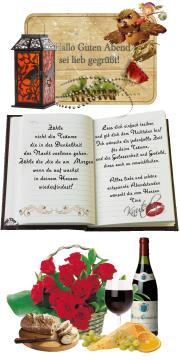 Hallo Guten Abend
sei lieb gegrüßt!
Zähle
nicht die Träume
die in der Dunkelheit
der Nacht verloren gehen.
Zähle die die du am Morgen
wenn du auf wachst
in deinem Herzen
wiederfindest!
Lass dich einfach treiben,
und gib dich dem Nichtstun hin!
Ich wünsche dir jederzeit Zeit
für deine Träume,
und die Gelassenheit und Geduld,
diese auch zu verwirklichen.
Alles Liebe und schöne
entspannte Abendstunden
wünscht dir von Herzen